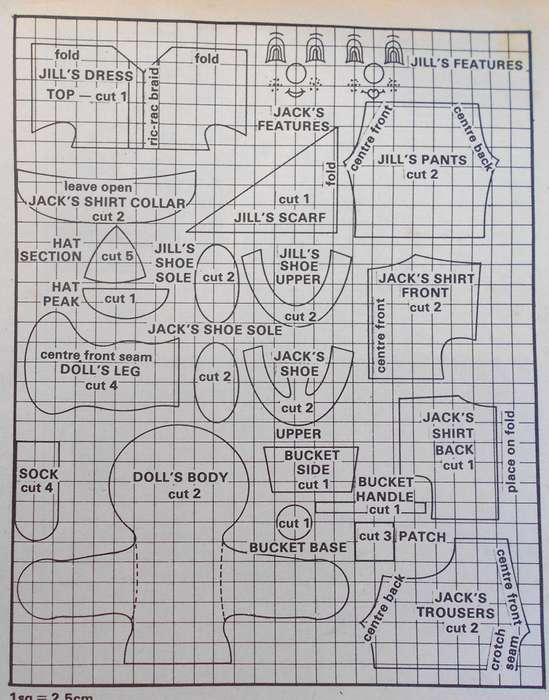 fold
fold
JILL'S DRESS
TOP — cut 1
ric-rac braid
JILL'S FEATURES
JACK'S
FEATURES
centre front
centre back
JILL'S PANTS
cut 2
fold
cut 1
JILL'S SCARF
leave open
JACK'S SHIRT COLLAR
cut 2
HAT
SECTION
cut 5
HAT
PEAK
cut 1
JILL'S
SHOE
SOLE
cut 2
JILL'S
SHOE
UPPER
cut 2
JACK'S SHIRT
FRONT
cut 2
centre front
JACK'S SHOE SOLE
cut 2
centre front seam
DOLL'S LEG
cut 4
JACK'S
SHOE
cut 2
UPPER
JACK'S
SHIRT
BACK
cut 1
place on fold
SOCK
cut 4
DOLL'S BODY
cut 2
BUCKET
SIDE
cut 1
BUCKET
HANDLE
cut 1
cut 1
BUCKET BASE
cut 3 PATCH
centre back
JACK'S
TROUSERS
cut 2
centre front
crotch
seam
1sq = 2.5cm